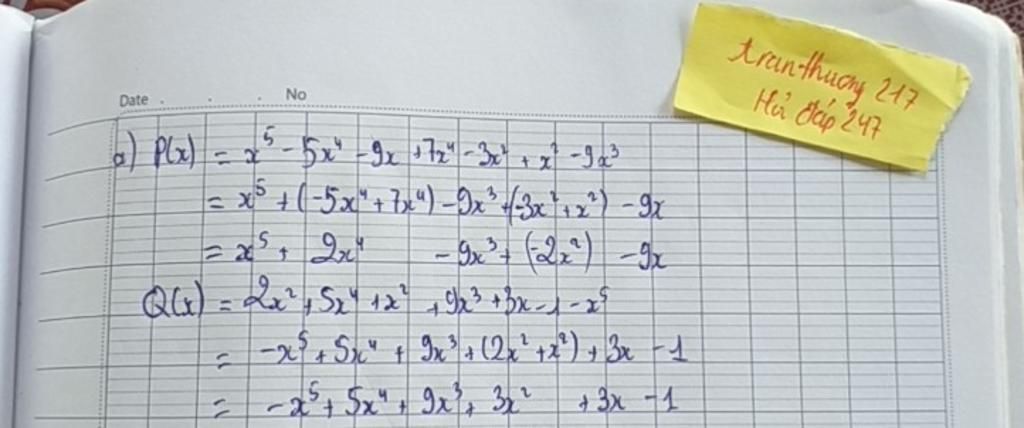 Date . . . No
tranthuong 217
Hỏi đáp 247
a) P(x) = x⁵ - 5x⁴ - 9x + 7x⁴ - 3x² + x² - 9x³
= x⁵ + (-5x⁴ + 7x⁴) - 9x³ + (-3x² + x²) - 9x
= x⁵ + 2x⁴ - 9x³ + (-2x²) - 9x
Q(x) = 2x² + 5x⁴ + x² + 9x³ + 3x - 1 - x⁵
= -x⁵ + 5x⁴ + 9x³ + (2x² + x²) + 3x - 1
= -x⁵ + 5x⁴ + 9x³ + 3x² + 3x - 1